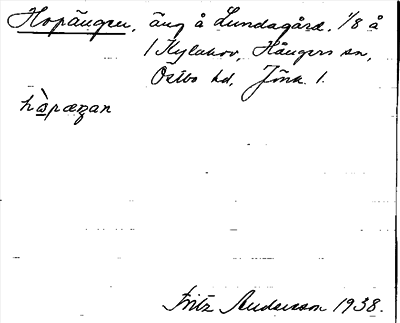 Hopängen, äng å Lundagård. 1/8 å
1 Kylahov, Hånger sn,
Östbo hd, Jönk. l.
hòpæŋan
Fritz Andersson 1938.